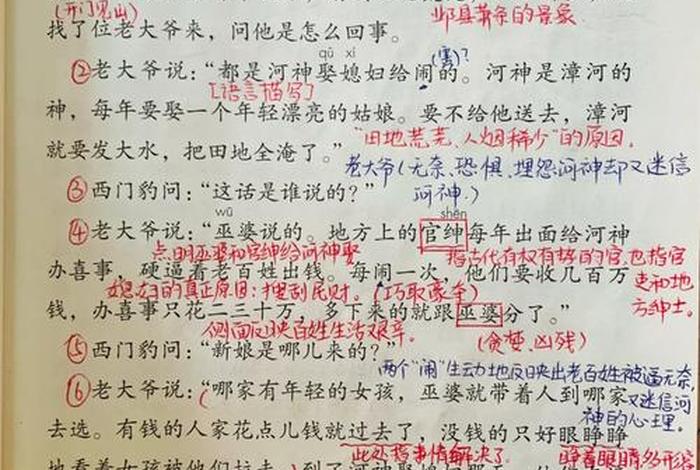 (开门见山)
邺县萧条的景象
找了位老大爷来，问他是怎么回事。
qǔ xí
(害)?
②老大爷说：“都是河神娶媳妇给闹的。河神是漳河的
[语言描写]
神，每年要娶一个年轻漂亮的姑娘。要不给他送去，漳河
“田地荒芜、人烟稀少”的原因。
就要发大水，把田地全淹了。”
老大爷(无奈、恐惧、埋怨河神却又迷信
河神。)
③西门豹问：“这话是谁说的？”
wū shēn
④老大爷说：“巫婆说的。地方上的官绅每年出面给河神
点明巫婆和官绅给河神娶
指古代有权有势的官，也指官
办喜事，硬逼着老百姓出钱。每闹一次，他们要收几百万
吏和地
媳妇的真正原因：搜刮民财。(巧取豪夺)
方绅士。
钱，办喜事只花二三十万，多下来的就跟巫婆分了。”
侧面反映百姓生活艰辛。
(贪婪、凶残)
⑤西门豹问：“新娘是哪儿来的？”
两个“闹”生动地反映出老百姓被逼无奈
⑥老大爷说：“哪家有年轻的女孩，巫婆就带着人到哪家
又迷信河
神的心理。
去选。有钱的人家花点儿钱就过去了，没钱的只好眼睁睁
此处指事情解决了。
睁着眼睛，多形容
地看着女孩被他们拉去。到了河神娶媳妇那天，